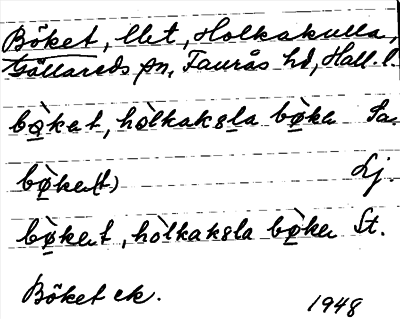 Böket, llet, Holkakulla,
Gällareds sn, Faurås hd, Hall. l.
bø̀kət, hòlkaksla bø̀kə Sa.
bø̀kə(t) Lj.
bø̀kət, hòlkaksla bø̀kə St.
Böket ek.
1948